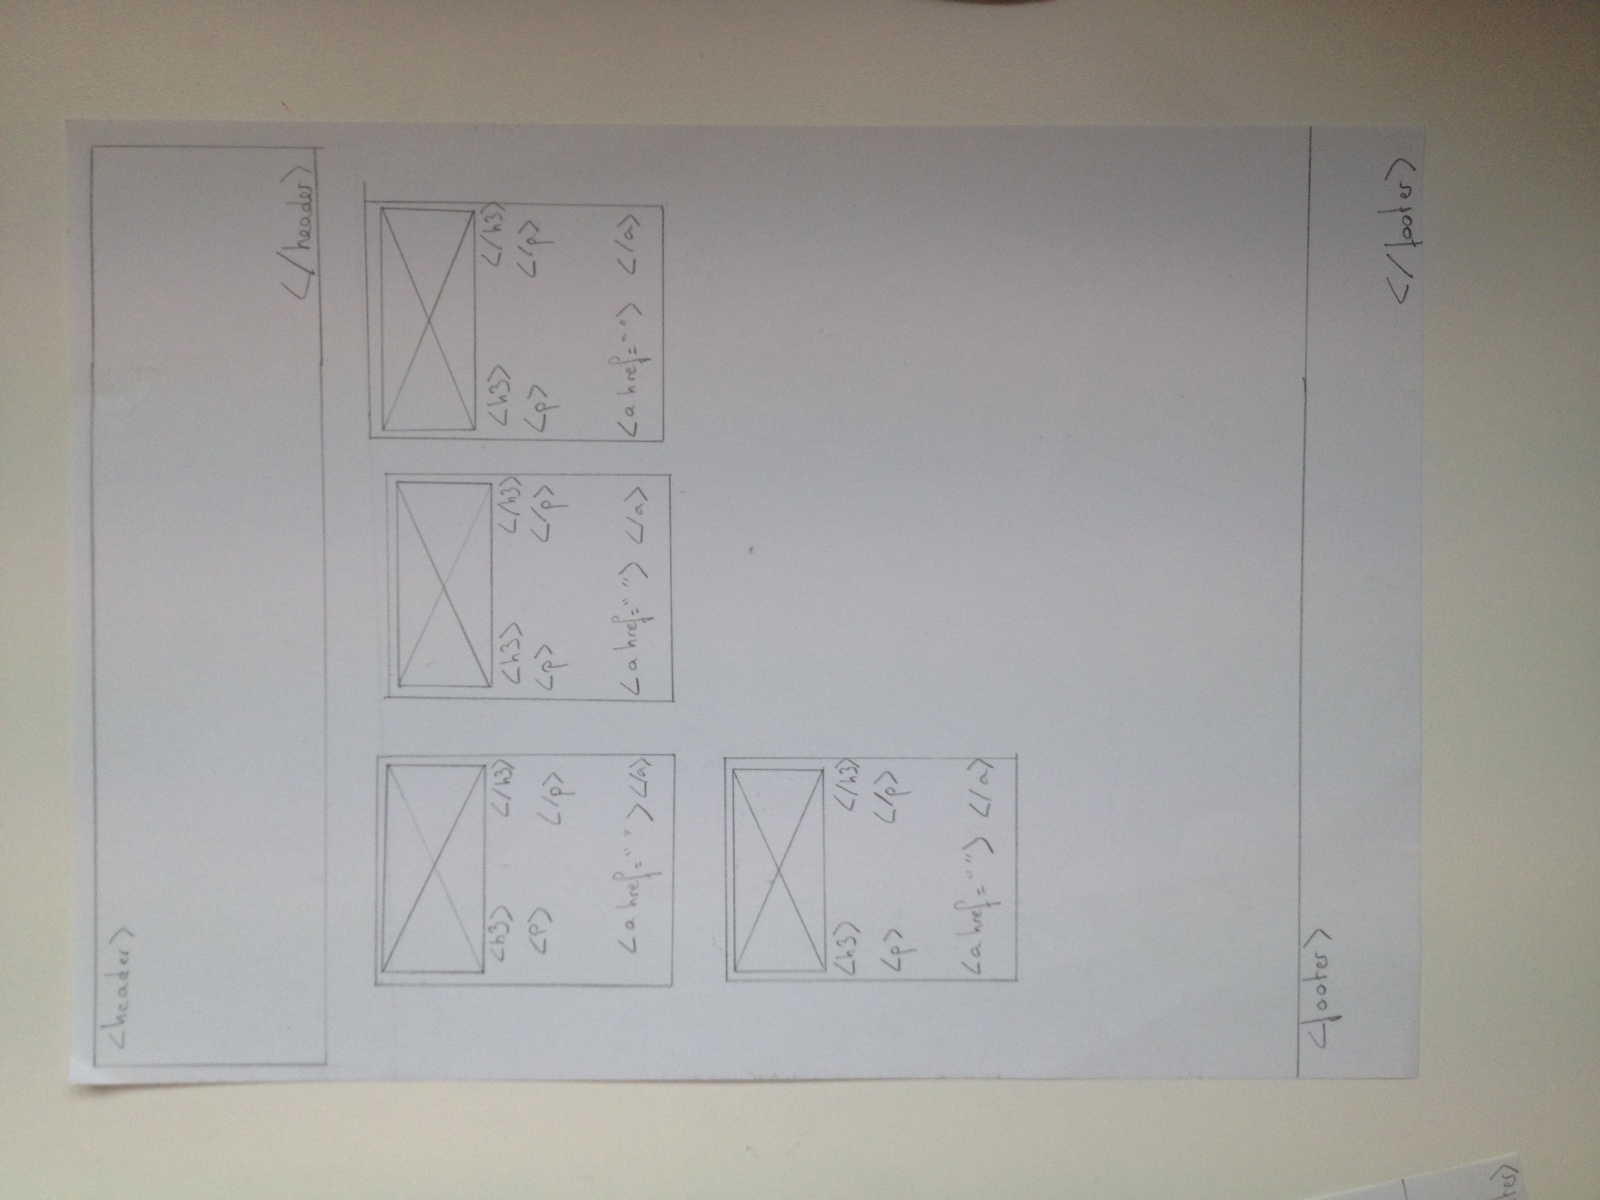 <header>
</header>
<h3> </h3>
<p> </p>
<a href=" "> </a>
<h3> </h3>
<p> </p>
<a href=" "> </a>
<h3> </h3>
<p> </p>
<a href=" "> </a>
<h3> </h3>
<p> </p>
<a href=" "> </a>
<footer>
</footer>